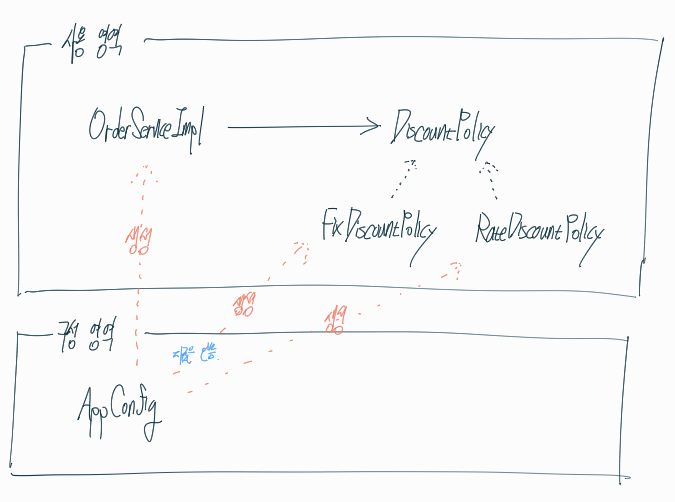 사용 영역
OrderServiceImpl
DiscountPolicy
FixDiscountPolicy
RateDiscountPolicy
생성
생성
생성
구성 영역
AppConfig